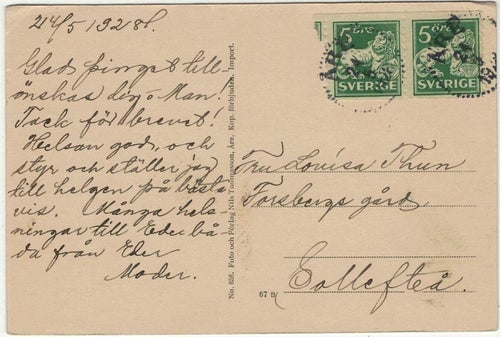 21/5 1928.
Glad pingst till-
önskas dig o Man!
Tack för brevet!
Helsan god, och
styr och ställer jag
till helgen på bästa
vis. Många hels-
ningar till Eder bå-
da från Eder
Moder.
No. 658. Foto och Förlag Nils Thomasson, Åre. Kop. förbjuden. Import.
67 B
5 ÖRE 5 ÖRE
SVERIGE SVERIGE
ÅRE
Fru Lovisa Thun
Forsbergs gård
Sollefteå